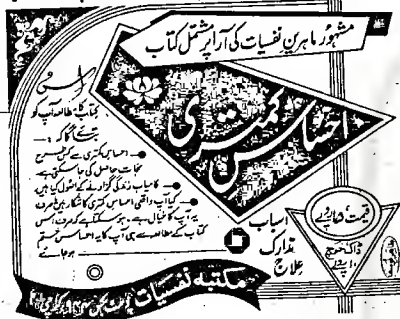 مشہور ماہرین نفسیات کی آرا پر مشتمل کتاب
احساس کمتری
اس
کتاب کا مطالعہ آپ کو
بتائے گا کہ :—
احساس کمتری سے کس طرح
نجات حاصل کی جا سکتی ہے
کامیاب زندگی گزارنے کے اصول کیا ہیں
کیا آپ واقعی احساس کمتری کا شکار ہیں یا صرف
یہ آپ کا خیال ہے۔ ہو سکتا ہے کہ صرف اس
کتاب کے مطالعہ سے ہی آپ کا یہ احساس ختم
ہو جائے
اسباب
تدارک
علاج
قیمت: ۱۵ روپے
ڈاک خرچ
۱۰ روپے
مکتبہ نفسیات پوسٹ بکس کراچی